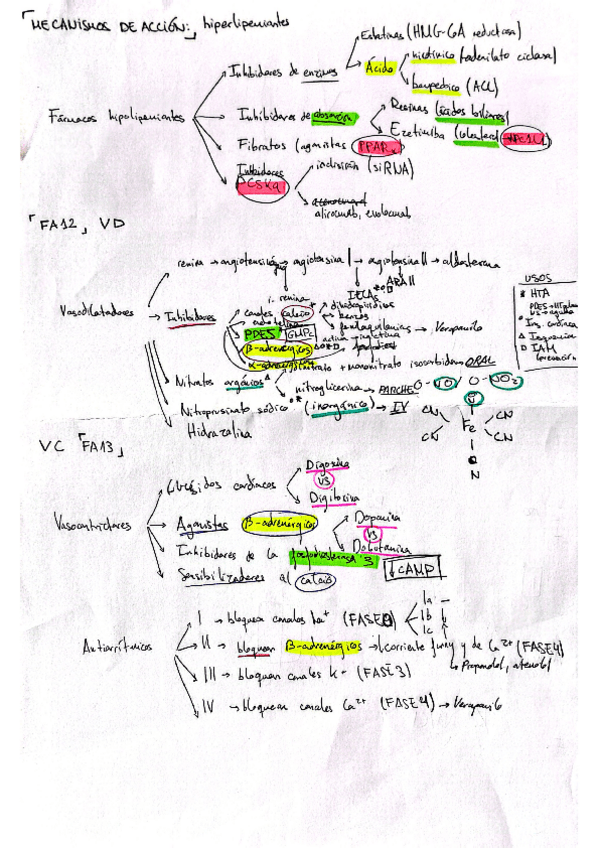 「MECANISMOS DE ACCIÓN: hiperlipemiantes
Fármacos hipolipemiantes
Inhibidores de enzimas
Estatinas (HMG-CoA reductasa)
Ácido
nicotínico (adenilato ciclasa)
bempedoico (ACL)
Inhibidores de absorción
Resinas (ácidos biliares)
Ezetimiba (colesterol
Fibratos (agonistas PPARα)
Inhibidores PCSK9
inclisirán (siRNA)
alirocumab, evolocumab
「FA12」 VD
renina → angiotensinógeno → angiotensina I → angiotensina II → aldosterona
Vasodilatadores
Inhibidores
i. renina
IECAs
ARA II
canales calcio
dihidropiridinas
benzo
fenilalquilaminas → Verapamilo
endotelina
PDE5
GMPc
β-adrenérgicos
α-adrenérgicos
Nitratos orgánicos
dinitrato + mononitrato isosorbide → ORAL
nitroglicerina → PARCHE
Nitroprusiato sódico (inorgánico) → IV
Hidralazina
O - NO
O - NO2
CN
CN
Fe
CN
CN
N
USOS
* HTA
Ins. cardíaca
IAM
VC 「FA13」
Vasoconstrictores
Glucósidos cardíacos
Digoxina
VS
Digitoxina
Agonistas β-adrenérgicos
Dopamina
VS
Dobutamina
Inhibidores de la fosfodiesterasa 3
↓ CAMP
Sensibilizadores al calcio
Antiarrítmicos
I → bloquea canales Na+ (FASE 0)
Ia —
Ib ↓
Ic ↑
II → bloquean β-adrenérgicos → ↓ corriente funny y de Ca2+ (FASE 4)
↳ Propranolol, atenolol
III → bloquean canales K+ (FASE 3)
IV → bloquean canales Ca2+ (FASE 4) → Verapamilo